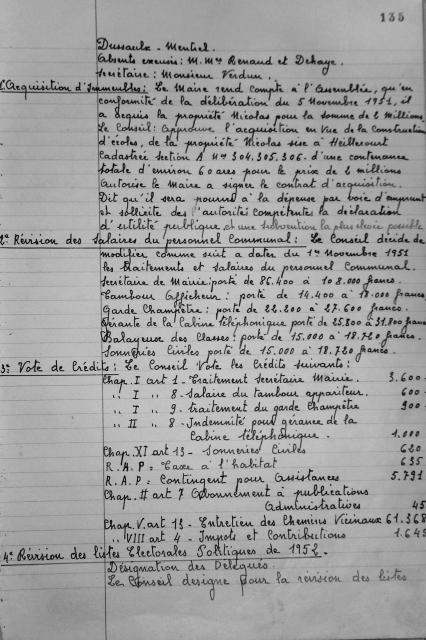 135
Dussaulx - Mentrel.
Absents excusés: M.Mrs Renaud et Dehaye.
Secrétaire: Monsieur Verdun.
1° Acquisition d'Immeubles: Le Maire rend compte à l'Assemblée, qu'en
conformité de la délibération du 5 Novembre 1951, il
a acquis la propriété Nicolas pour la somme de 2 Millions.
Le Conseil: Approuve l'acquisition en Vue de la Construction
d'écoles, de la propriété Nicolas sise à Heillecourt
Cadastrée section A Nos 304.305.306. d'une contenance
totale d'environ 60 ares pour le prix de 2 millions
Autorise le Maire à signer le contrat d'acquisition.
Dit qu'il sera pourvu à la dépense par voie d'emprunt
et sollicite des autorités compétentes la déclaration
d'utilité publique, et une subvention la plus élevée possible
2° Révision des Salaires du personnel Communal: Le Conseil décide de
modifier comme suit à dater du 1er Novembre 1951
les traitements et salaires du personnel Communal.
Secrétaire de Mairie: porté de 86.400 à 108.000 francs.
Tambour Afficheur: porté de 14.400 à 18.000 francs
Garde Champêtre: porté de 22.200 à 27.600 francs.
Gérante de la Cabine Téléphonique porté de 25.800 à 31.800 francs
Balayeuse des Classes: porté de 15.000 à 18.720 francs.
Sonneries Civiles porté de 15.000 à 18.720 francs.
3° Vote de Crédits: Le Conseil Vote les Crédits suivants:
Chap. I art 1 - Traitement secrétaire Mairie. 3.600
" I " 8 - Salaire du tambour appariteur. 600
" I " 9 - traitement du garde Champêtre 900
" II " 8 - Indemnité pour gérance de la
Cabine téléphonique. 1.000
Chap. XI art 13 - Sonneries Civiles 620
R.A.P = Taxe à l'habitat 635
R.A.P = Contingent pour Assistances 5.791
Chap. II art 7 Abonnement à publications
Administratives 45
Chap. V. art 13 - Entretien des Chemins Vicinaux 61.368
" VIII art 4 - Impots et Contributions 1.645
4° Révision des listes Electorales Politiques de 1952.
Désignation des Délégués
Le Conseil désigne pour la révision des listes